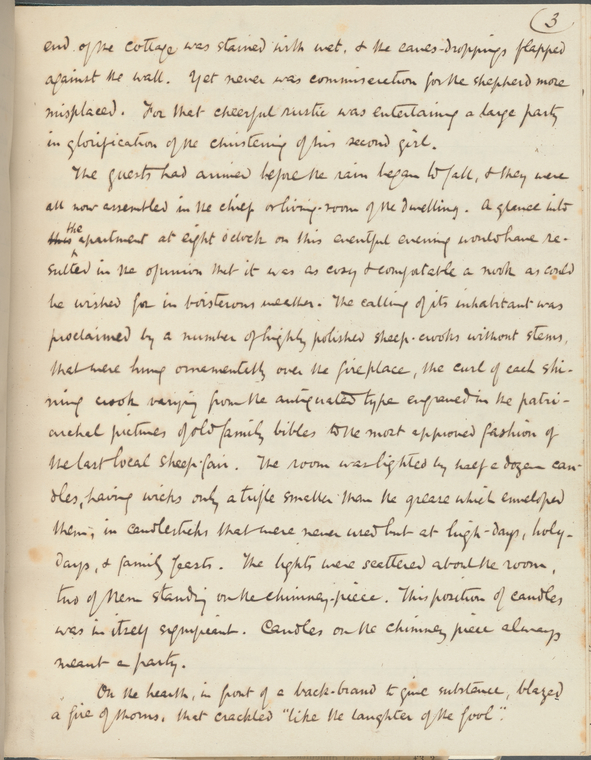 3
end of the cottage was stained with wet, & the eaves-droppings flapped
against the wall. Yet never was commiseration for the shepherd more
misplaced. For that cheerful rustic was entertaining a large party
in glorification of the christening of his second girl.
The guests had arrived before the rain began to fall, & they were
all now assembled in the chief or living-room of the dwelling. A glance into
the
this apartment at eight o'clock on this eventful evening would have re-
sulted in the opinion that it was as cosy & comfortable a nook as could
be wished for in boisterous weather. The calling of its inhabitant was
proclaimed by a number of highly polished sheep-crooks without stems,
that were hung ornamentally over the fireplace, the curl of each shi-
ning crook varying from the antiquated type engraved in the patri-
archal pictures of old family bibles to the most approved fashion of
the last local sheep-fair. The room was lighted by half a dozen can-
dles, having wicks only a trifle smaller than the grease which enveloped
them, in candlesticks that were never used but at high-days, holy-
days, & family feasts. The lights were scattered about the room,
two of them standing on the chimney-piece. This position of candles
was in itself significant. Candles on the chimney piece always
meant a party.
On the hearth, in front of a back-brand to give substance, blazed
a fire of thorns, that crackled "like the laughter of the fool".